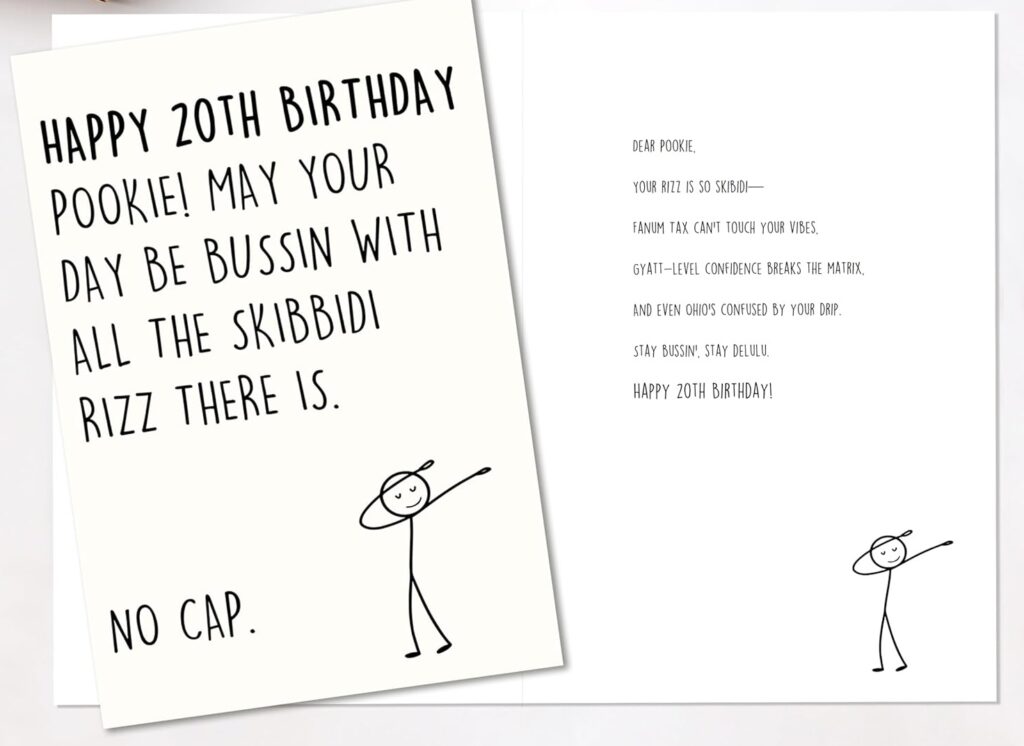 HAPPY 20TH BIRTHDAY
POOKIE! MAY YOUR
DAY BE BUSSIN WITH
ALL THE SKIBBIDI
RIZZ THERE IS.
NO CAP.
DEAR POOKIE,
YOUR RIZZ IS SO SKIBIDI—
FANUM TAX CAN'T TOUCH YOUR VIBES,
GYATT-LEVEL CONFIDENCE BREAKS THE MATRIX,
AND EVEN OHIO'S CONFUSED BY YOUR DRIP.
STAY BUSSIN', STAY DELULU.
HAPPY 20TH BIRTHDAY!